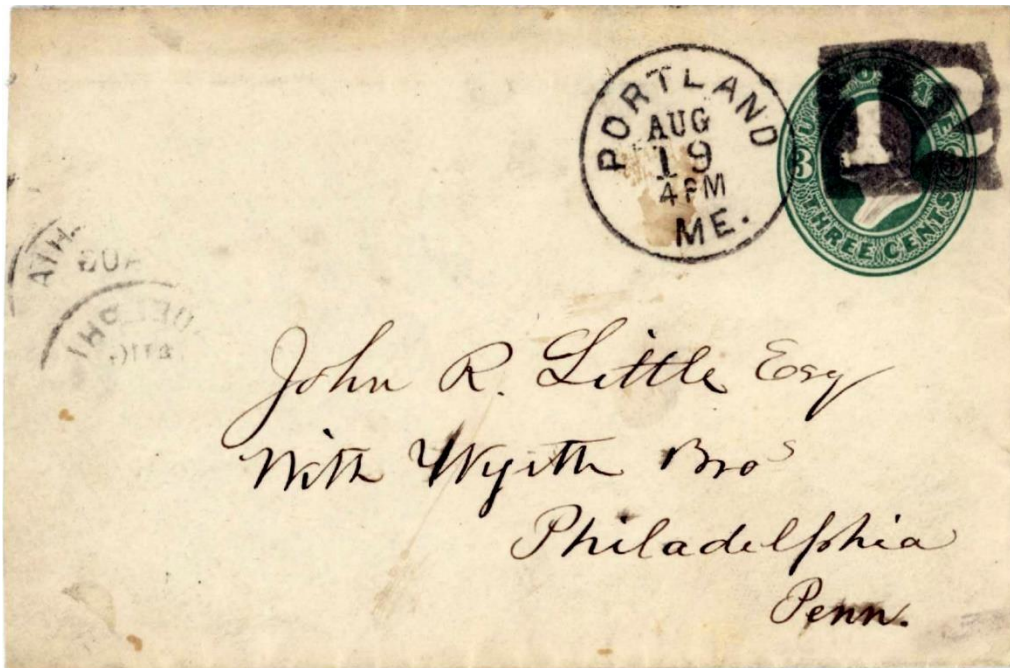 PORTLAND
AUG
19
4 PM
ME.
U.S. POSTAGE
3 3
THREE CENTS
1
AUG
John R. Little Esq
With Wyeth Bros
Philadelphia
Penn.